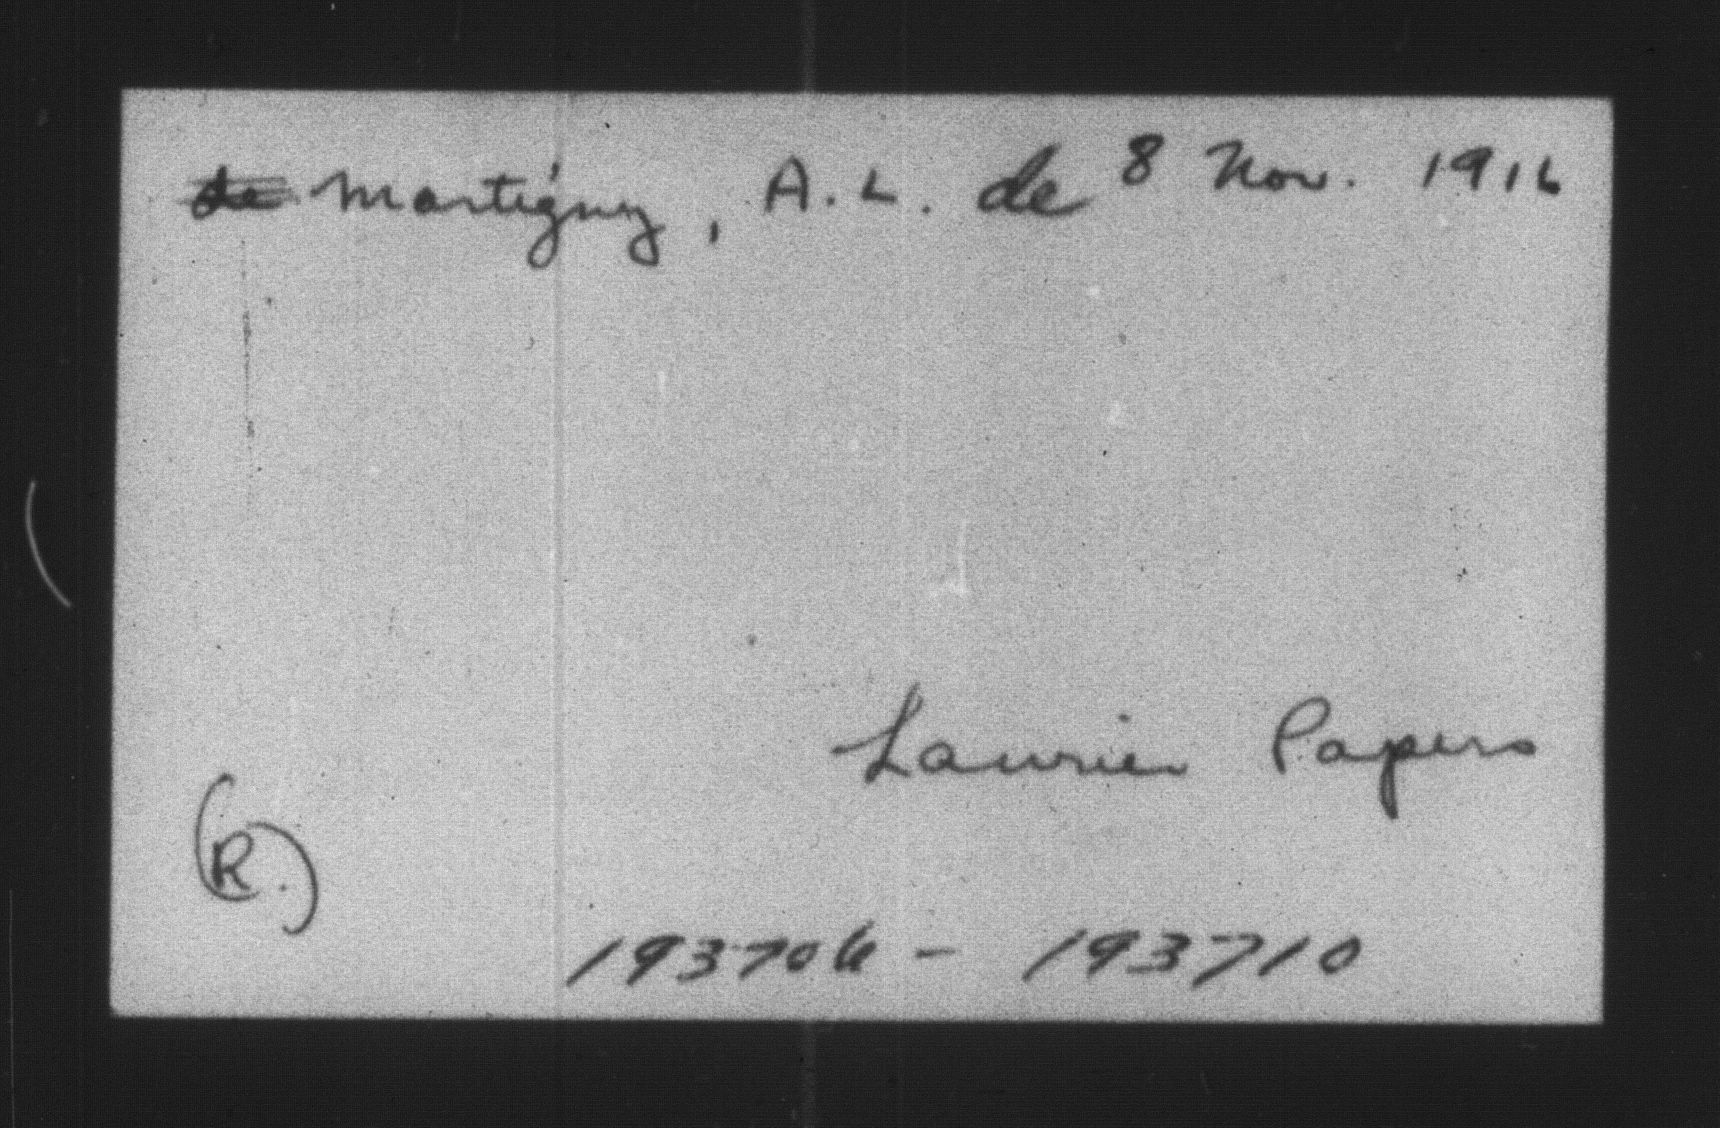 de Martigny, A. L. de 8 Nov. 1916
Laurier Papers
(R.)
193706 - 193710